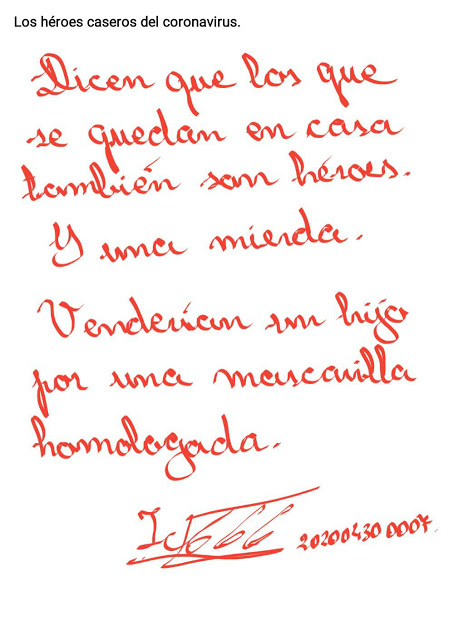 Los héroes caseros del coronavirus.
Dicen que los que
se quedan en casa
también son héroes.
Y una mierda.
Venderían un hijo
por una mascarilla
homologada.
20200430 0007.